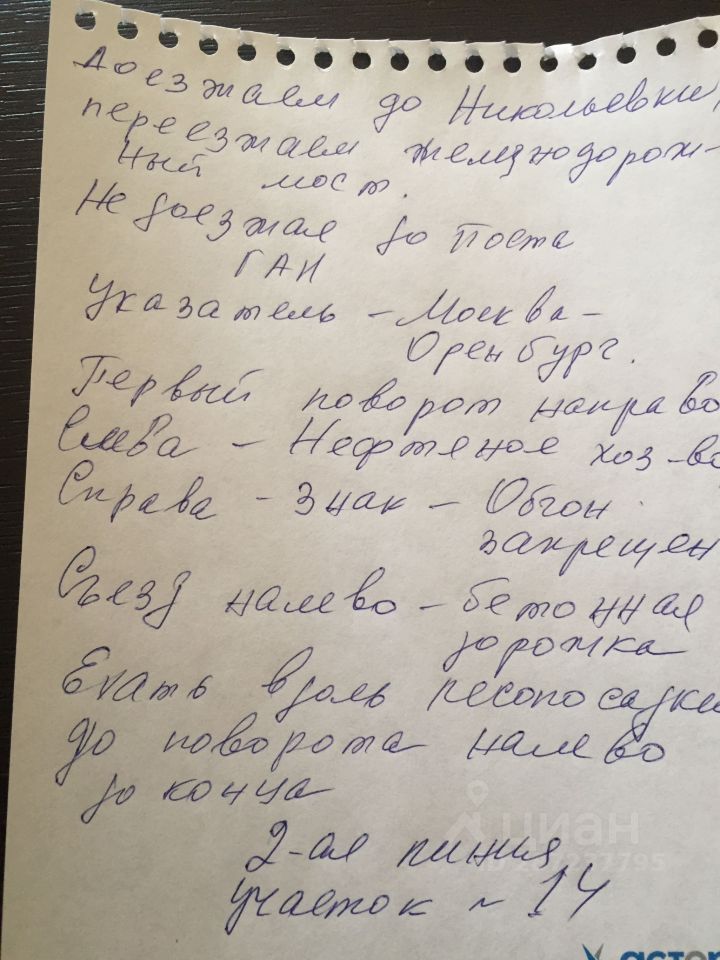 Доезжаем до Никольевки,
переезжаем железнодорож-
ный мост.
Не доезжая до Поста
ГАИ
Указатель – Москва –
Оренбург.
Первый поворот направо
Слева – Нефтяное хоз-во
Справа – Знак – Обгон
запрещен
Съезд налево – бетонная
дорожка
Ехать вдоль лесопосадки
до поворота налево
до конца
2-ая линия
участок ~ 14
циан